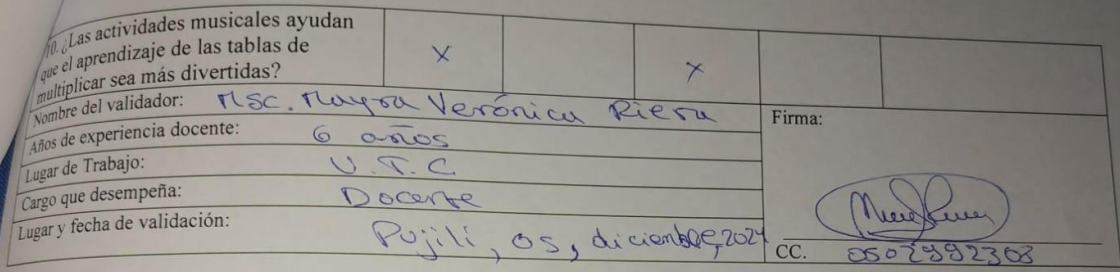 10. ¿Las actividades musicales ayudan
que el aprendizaje de las tablas de
multiplicar sea más divertidas?
X X
Nombre del validador: Msc. Mayra Verónica Riera
Años de experiencia docente: 6 años
Lugar de Trabajo: U.T.C
Cargo que desempeña: Docente
Lugar y fecha de validación: Pujilí, 05, diciembre, 2024
Firma:
CC. 0502992303